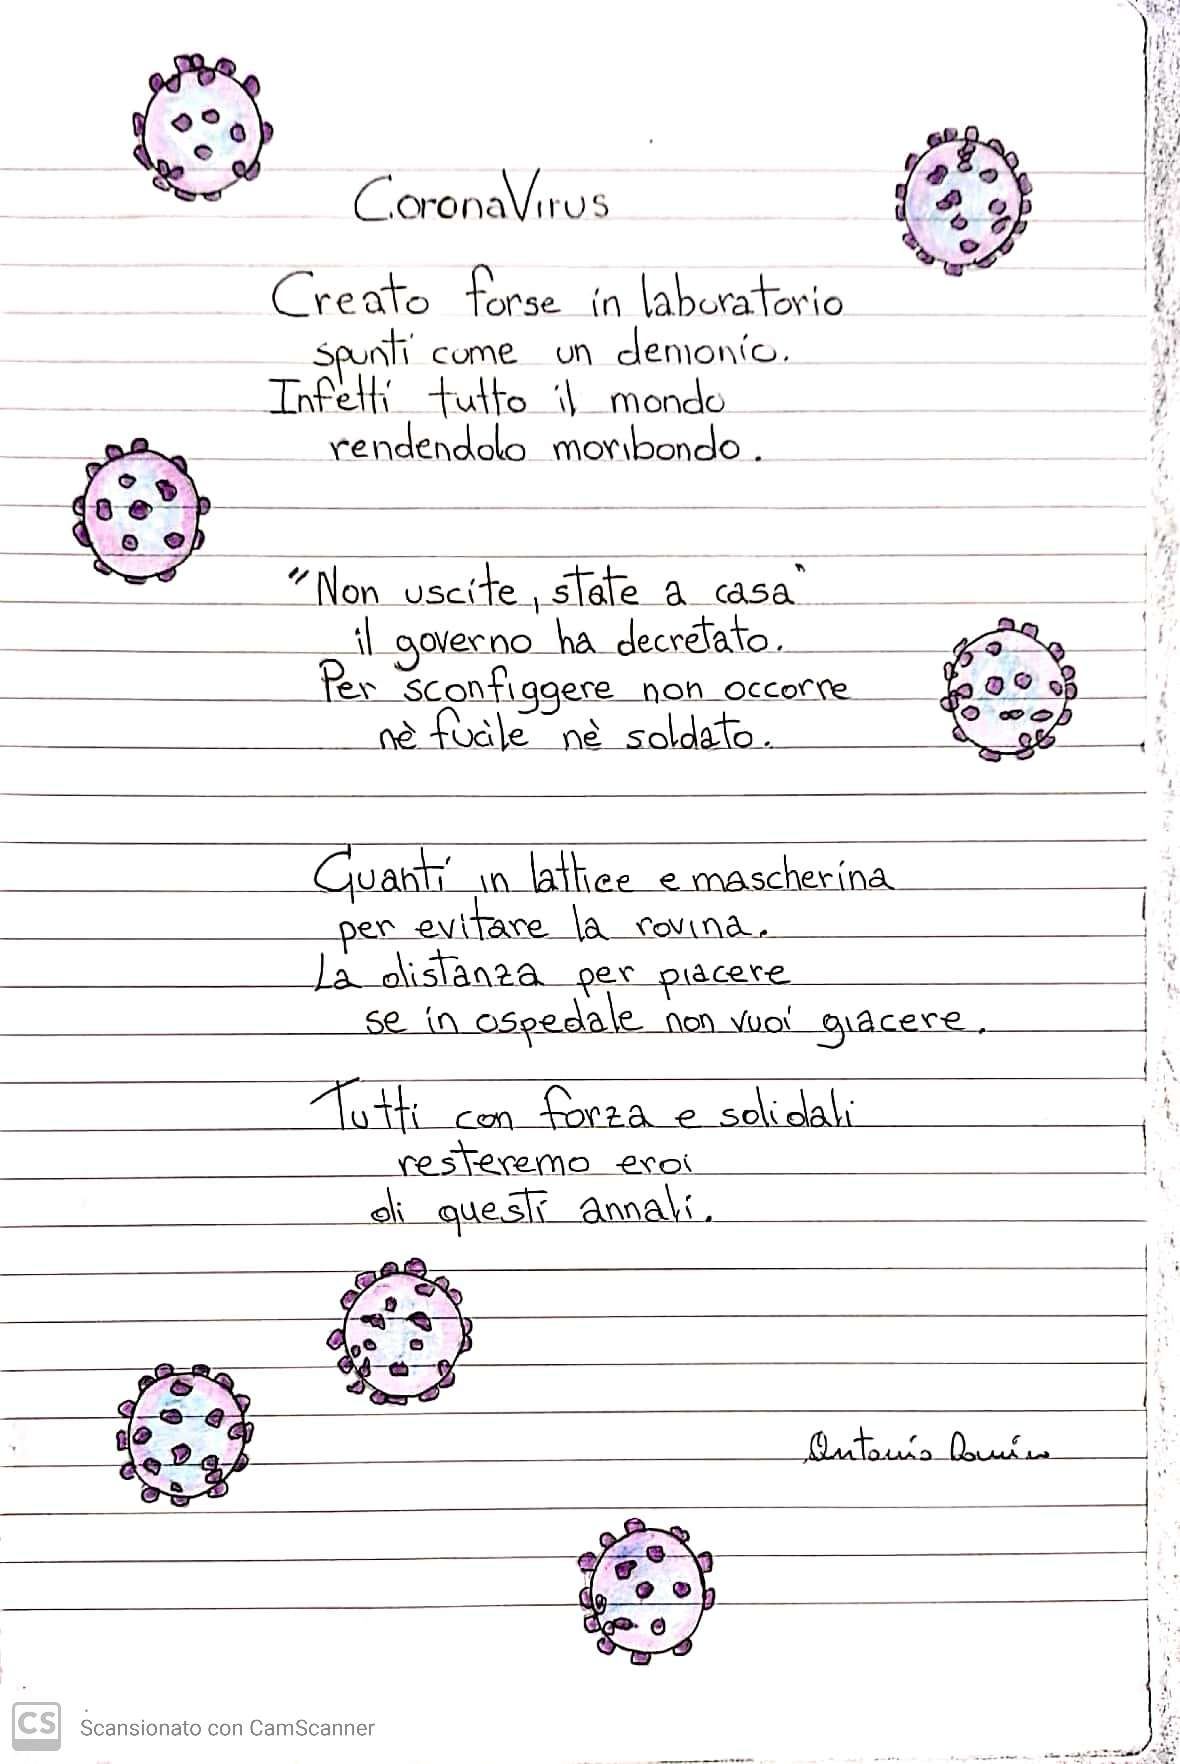 CoronaVirus
Creato forse in laboratorio
spunti come un demonio.
Infetti tutto il mondo
rendendolo moribondo.
"Non uscite, state a casa"
il governo ha decretato.
Per sconfiggere non occorre
nè fucile nè soldato.
Guanti in lattice e mascherina
per evitare la rovina.
La distanza per piacere
se in ospedale non vuoi giacere.
Tutti con forza e solidali
resteremo eroi
di questi annali.
Antonio
CS Scansionato con CamScanner